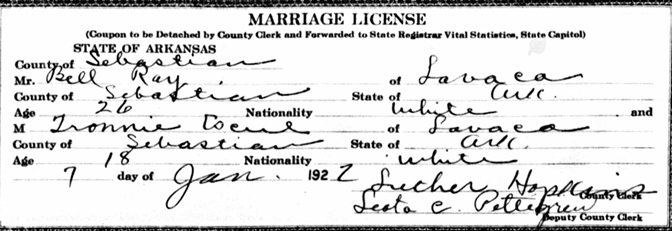 MARRIAGE LICENSE
(Coupon to be Detached by County Clerk and Forwarded to State Registrar Vital Statistics, State Capitol)
STATE OF ARKANSAS
County of Sebastian
Mr. Bell Ray of Lavaca
County of Sebastian State of Ark.
Age 26 Nationality White and
M of Lavaca
County of Sebastian State of Ark.
Age 18 Nationality White
7 day of Jan. 1922
Luther Hopkins County Clerk
Lesta C. Pettigrew
Deputy County Clerk